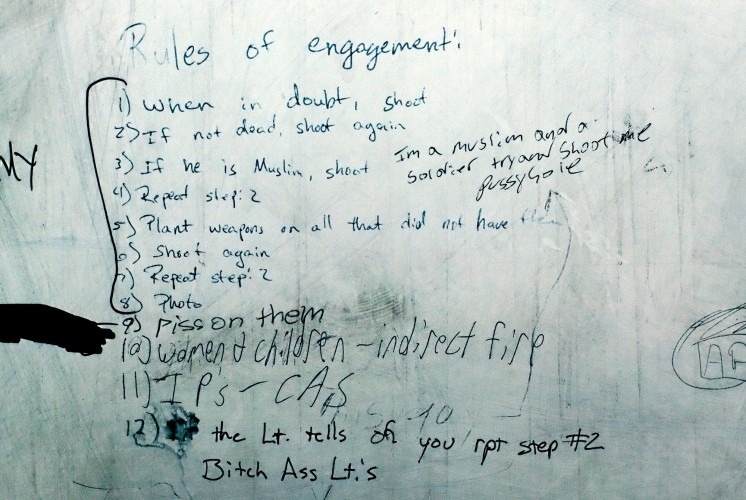 Rules of engagement:
1) When in doubt, shoot
2) If not dead, shoot again
3) If he is Muslim, shoot
Im a muslim and a
soldier try and shoot me
pussy
4) Repeat step: 2
5) Plant weapons on all that did not have them
6) Shoot again
7) Repeat step: 2
8) Photo
9) Piss on them
10) women & children - indirect fire
11) IP's - CAS
12) the Lt. tells of you rpt step #2
Bitch Ass Lt.'s
MY